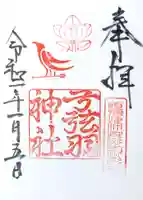 奉拝
弓弦羽
神社
令和二年一月五日